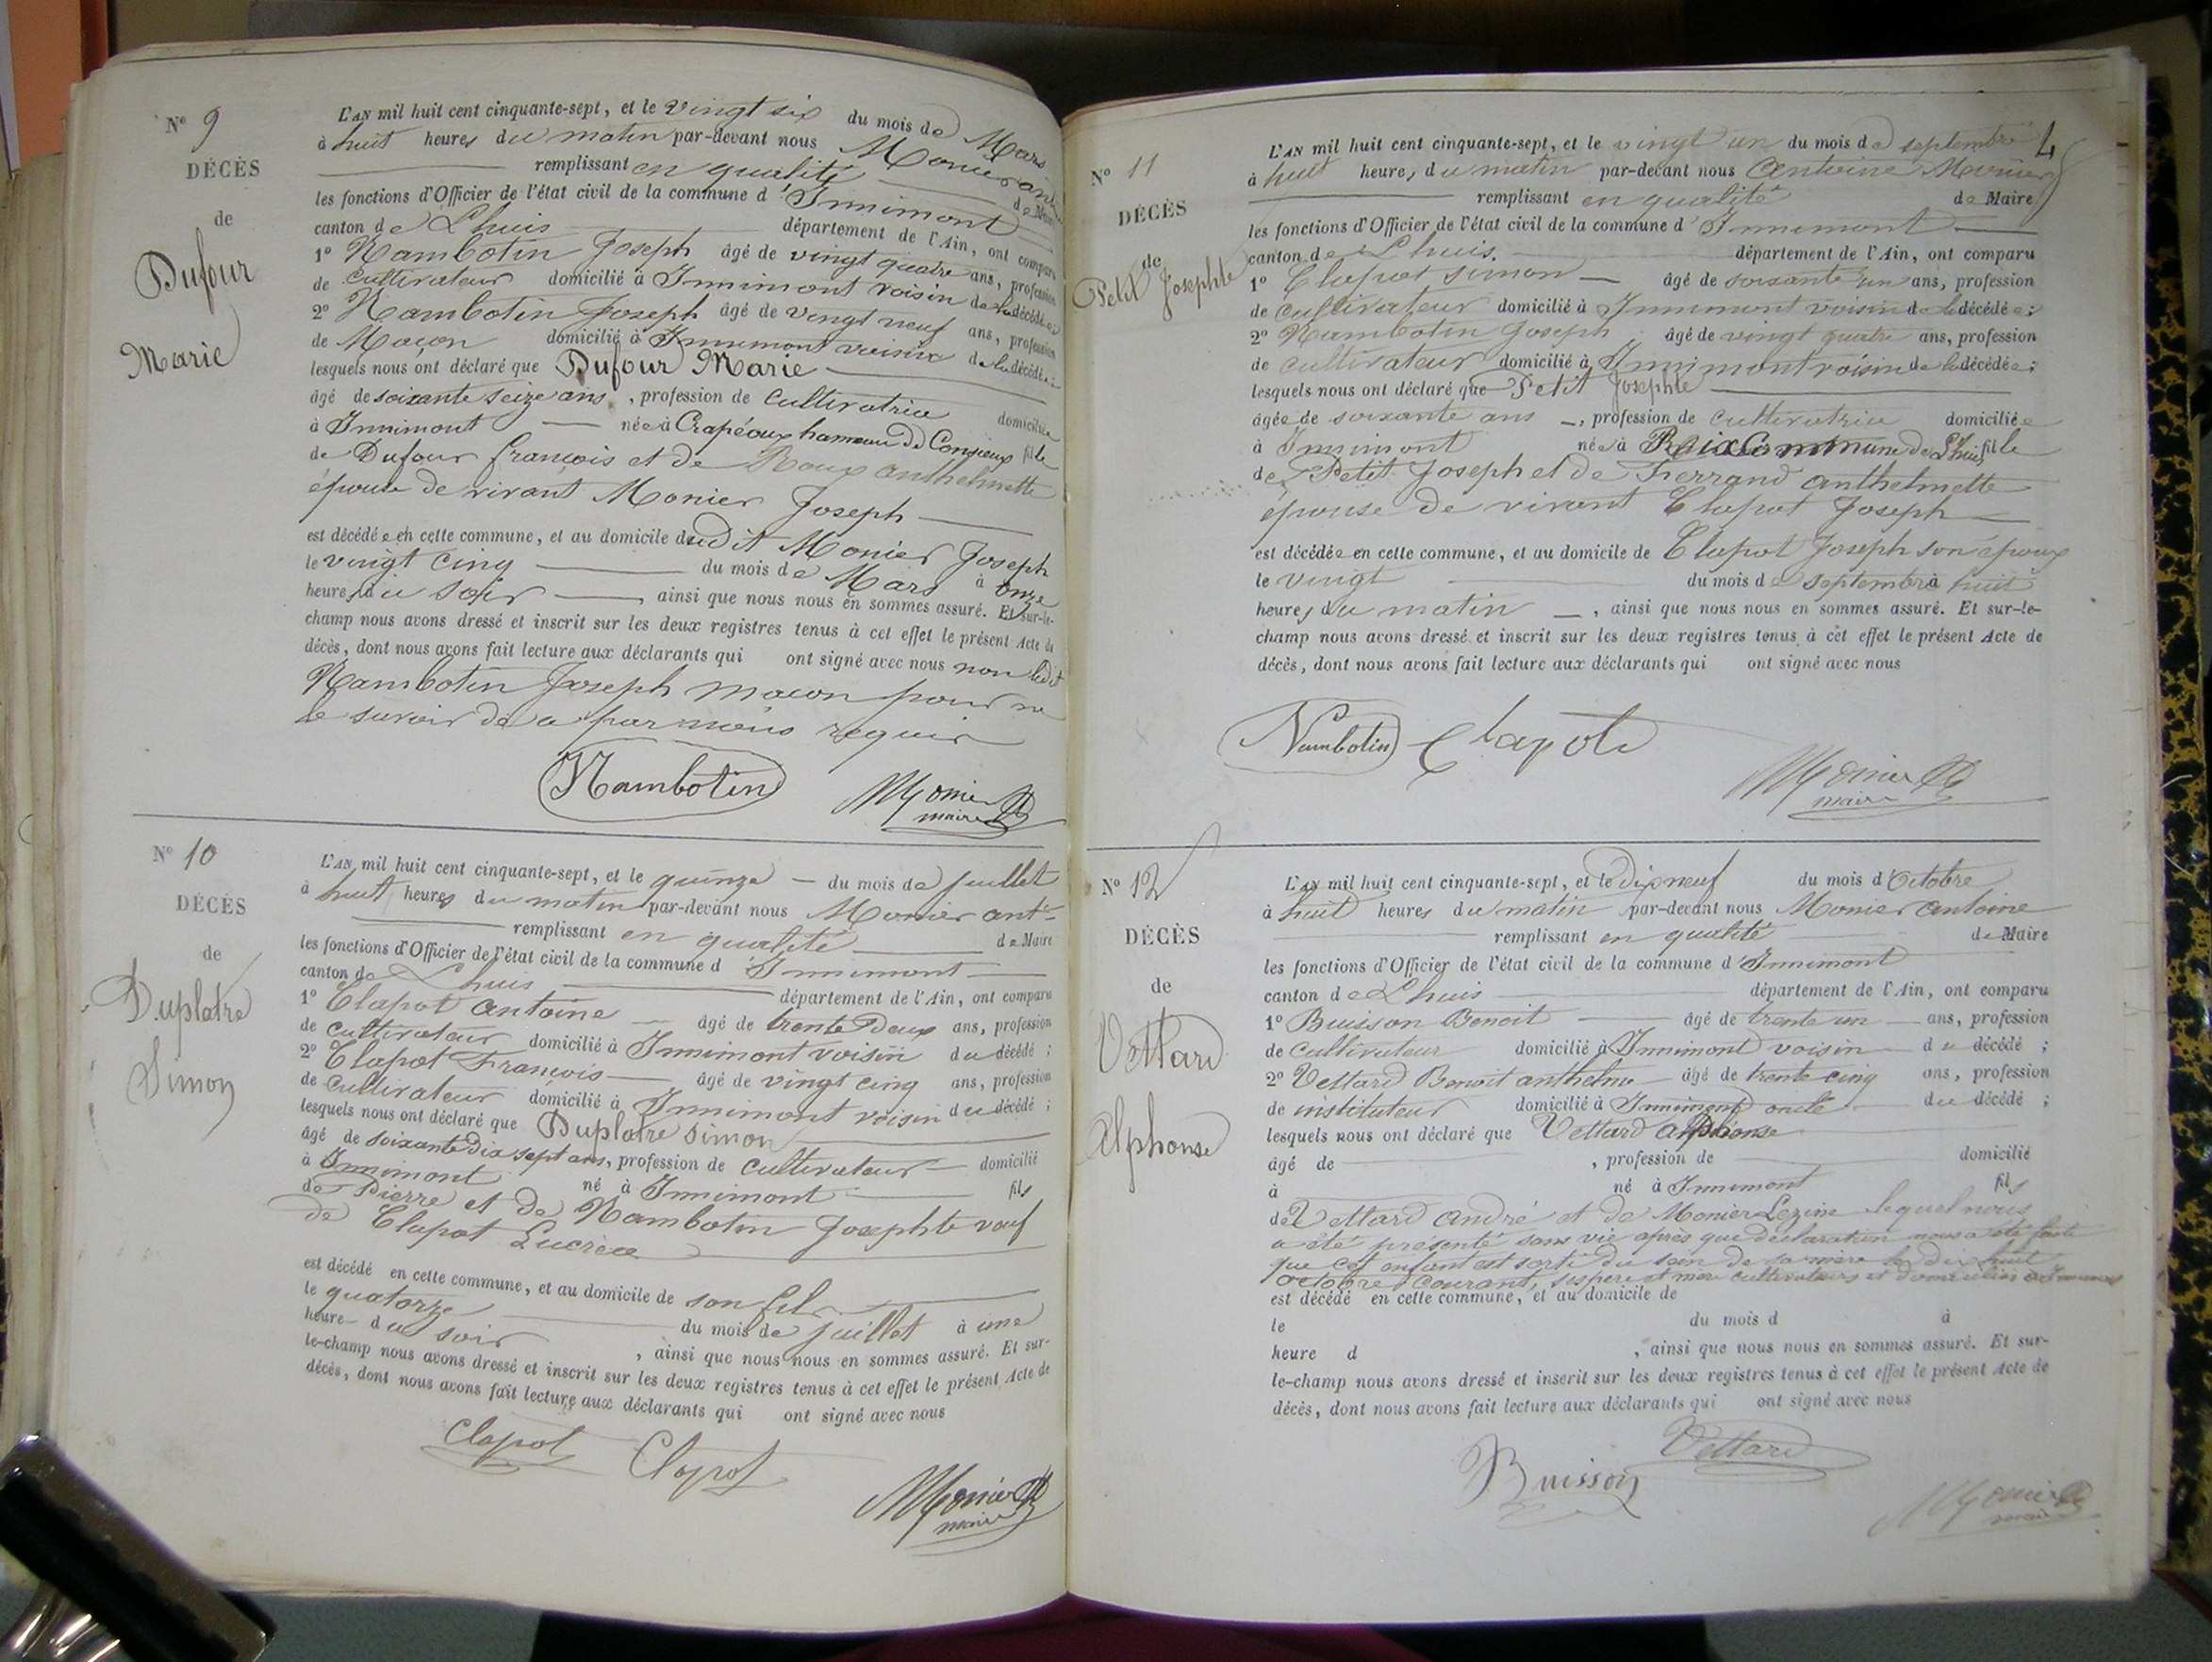 N° 9
DÉCÈS
de
Dufour
Marie
L'AN mil huit cent cinquante-sept, et le vingt six du mois de Mars
à huit heures du matin par-devant nous Monier
remplissant en qualité de Maire
les fonctions d'Officier de l'état civil de la commune d'Innimont
canton de Lhuis département de l'Ain, ont comparu
1° Nambotin Joseph âgé de vingt quatre ans, profession
de cultivateur domicilié à Innimont voisin de la décédée
2° Nambotin Joseph âgé de vingt neuf ans, profession
de Maçon domicilié à Innimont voisin de la décédée;
lesquels nous ont déclaré que Dufour Marie
âgé de soixante seize ans, profession de cultivatrice domiciliée
à Innimont née à Crapéoux hameau de Conzieux fille
de Dufour françois et de Roux anthelmette
épouse de vivant Monier Joseph
est décédée en cette commune, et au domicile dudit Monier Joseph
le vingt cinq du mois de Mars à onze
heures du soir, ainsi que nous nous en sommes assuré. Et sur-le-
champ nous avons dressé et inscrit sur les deux registres tenus à cet effet le présent Acte de
décès, dont nous avons fait lecture aux déclarants qui ont signé avec nous non ledit
Nambotin Joseph macon pour ne
le savoir de a par nous requis
Nambotin
Monier
maire
N° 10
DÉCÈS
de
Duplatre
Simon
L'AN mil huit cent cinquante-sept, et le quinze du mois de juillet
à huit heures du matin par-devant nous Monier ant-
remplissant en qualité de Maire
les fonctions d'Officier de l'état civil de la commune d'Innimont
canton de Lhuis département de l'Ain, ont comparu
1° Clapot antoine âgé de trente Deux ans, profession
de cultivateur domicilié à Innimont voisin du décédé;
2° Clapot François âgé de vingt cinq ans, profession
de cultivateur domicilié à Innimont voisin du décédé;
lesquels nous ont déclaré que Duplatre Simon
âgé de soixante Dix sept ans, profession de cultivateur domicilié
à Innimont né à Innimont fils
de Pierre et de Nambotin Josephte veuf
de Clapot Lucrèce
est décédé en cette commune, et au domicile de son fils
le quatorze du mois de juillet à une
heure du soir, ainsi que nous nous en sommes assuré. Et sur-
le-champ nous avons dressé et inscrit sur les deux registres tenus à cet effet le présent Acte de
décès, dont nous avons fait lecture aux déclarants qui ont signé avec nous
Clapot Clapot
Monier
maire
4
N° 11
DÉCÈS
de
Petit Josephte
L'AN mil huit cent cinquante-sept, et le vingt un du mois de septembre
à huit heures du matin par-devant nous Antoine Monier
remplissant en qualité de Maire
les fonctions d'Officier de l'état civil de la commune d'Innimont
canton de Lhuis. département de l'Ain, ont comparu
1° Clapot simon âgé de soixante un ans, profession
de cultivateur domicilié à Innimont voisin de la décédée;
2° Nambotin Joseph âgé de vingt quatre ans, profession
de cultivateur domicilié à Innimont voisin de la décédée;
lesquels nous ont déclaré que Petit Josephte
âgée de soixante ans, profession de cultivatrice domiciliée
à Innimont née à Rix Commune de Lhuis fille
de Petit Joseph et de Ferrand anthelmette
épouse de vivant Clapot Joseph
est décédée en cette commune, et au domicile de Clapot Joseph son époux
le vingt du mois de septembre à huit
heures du matin, ainsi que nous nous en sommes assuré. Et sur-le-
champ nous avons dressé et inscrit sur les deux registres tenus à cet effet le présent Acte de
décès, dont nous avons fait lecture aux déclarants qui ont signé avec nous
Nambotin Clapot
Monier
maire
N° 12
DÉCÈS
de
Vettard
Alphonse
L'AN mil huit cent cinquante-sept, et le dix neuf du mois d'Octobre
à huit heures du matin par-devant nous Monier antoine
remplissant en qualité de Maire
les fonctions d'Officier de l'état civil de la commune d'Innimont
canton de Lhuis département de l'Ain, ont comparu
1° Buisson Benoit âgé de trente un ans, profession
de cultivateur domicilié à Innimont voisin du décédé;
2° Vettard Benoit anthelme âgé de trente cinq ans, profession
de instituteur domicilié à Innimont oncle du décédé;
lesquels nous ont déclaré que Vettard Alphonse
âgé de , profession de domicilié
à né à Innimont fils
de Vettard André et de Monier Lezine lequel nous
a été présenté sans vie après que déclaration nous a été faite
que cet enfant est sorti du sein de sa mère le dix huit
octobre courant, ses père et mère cultivateurs et domiciliés à Innimont
est décédé en cette commune, et au domicile de
le du mois d à
heure d , ainsi que nous nous en sommes assuré. Et sur-
le-champ nous avons dressé et inscrit sur les deux registres tenus à cet effet le présent Acte de
décès, dont nous avons fait lecture aux déclarants qui ont signé avec nous
Buisson Vettard
Monier
maire